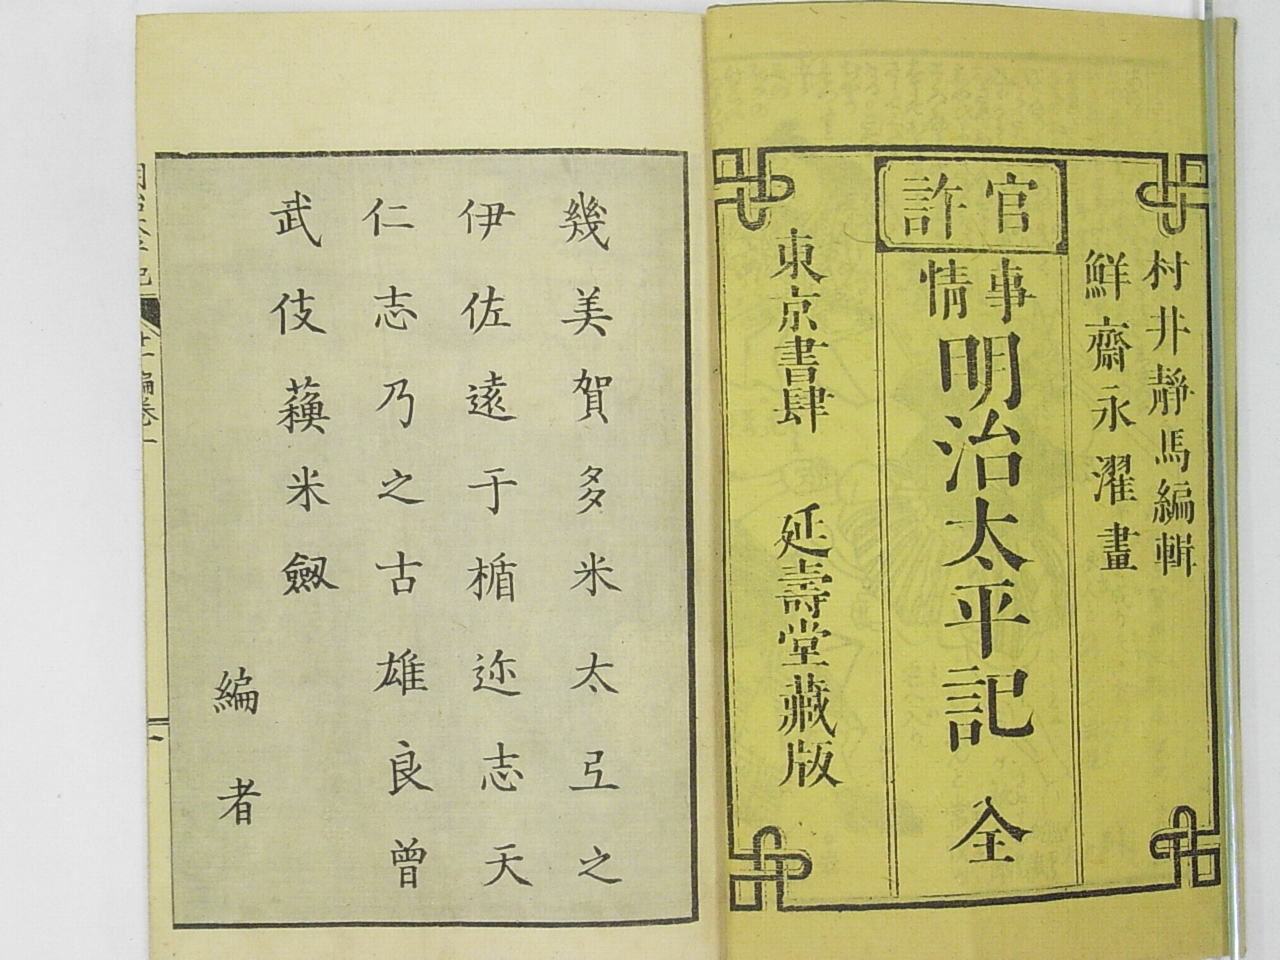 村井靜馬編輯
鮮齋永濯畫
官許
事情
明治太平記 全
東京書肆 延壽堂藏版
幾美賀多米太弖之
伊佐遠于楯迩志天
仁志乃之古雄良曾
武伎蘓米劔
編者